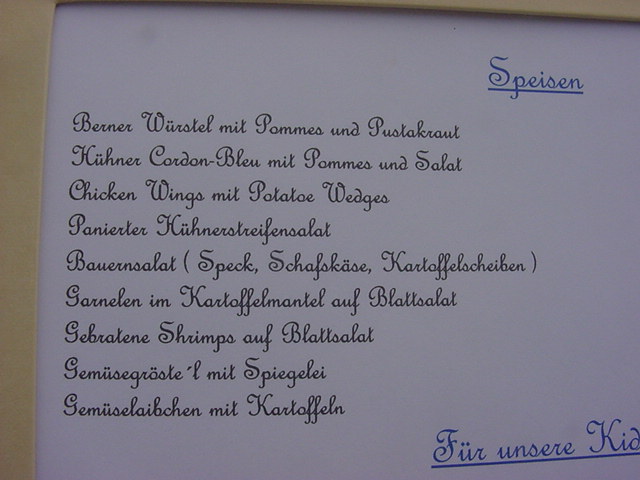 Speisen
Berner Würstel mit Pommes und Pustakraut
Hühner Cordon-Bleu mit Pommes und Salat
Chicken Wings mit Potatoe Wedges
Panierter Hühnerstreifensalat
Bauernsalat ( Speck, Schafskäse, Kartoffelscheiben )
Garnelen im Kartoffelmantel auf Blattsalat
Gebratene Shrimps auf Blattsalat
Gemüsegröste´l mit Spiegelei
Gemüselaibchen mit Kartoffeln
Für unsere Kid